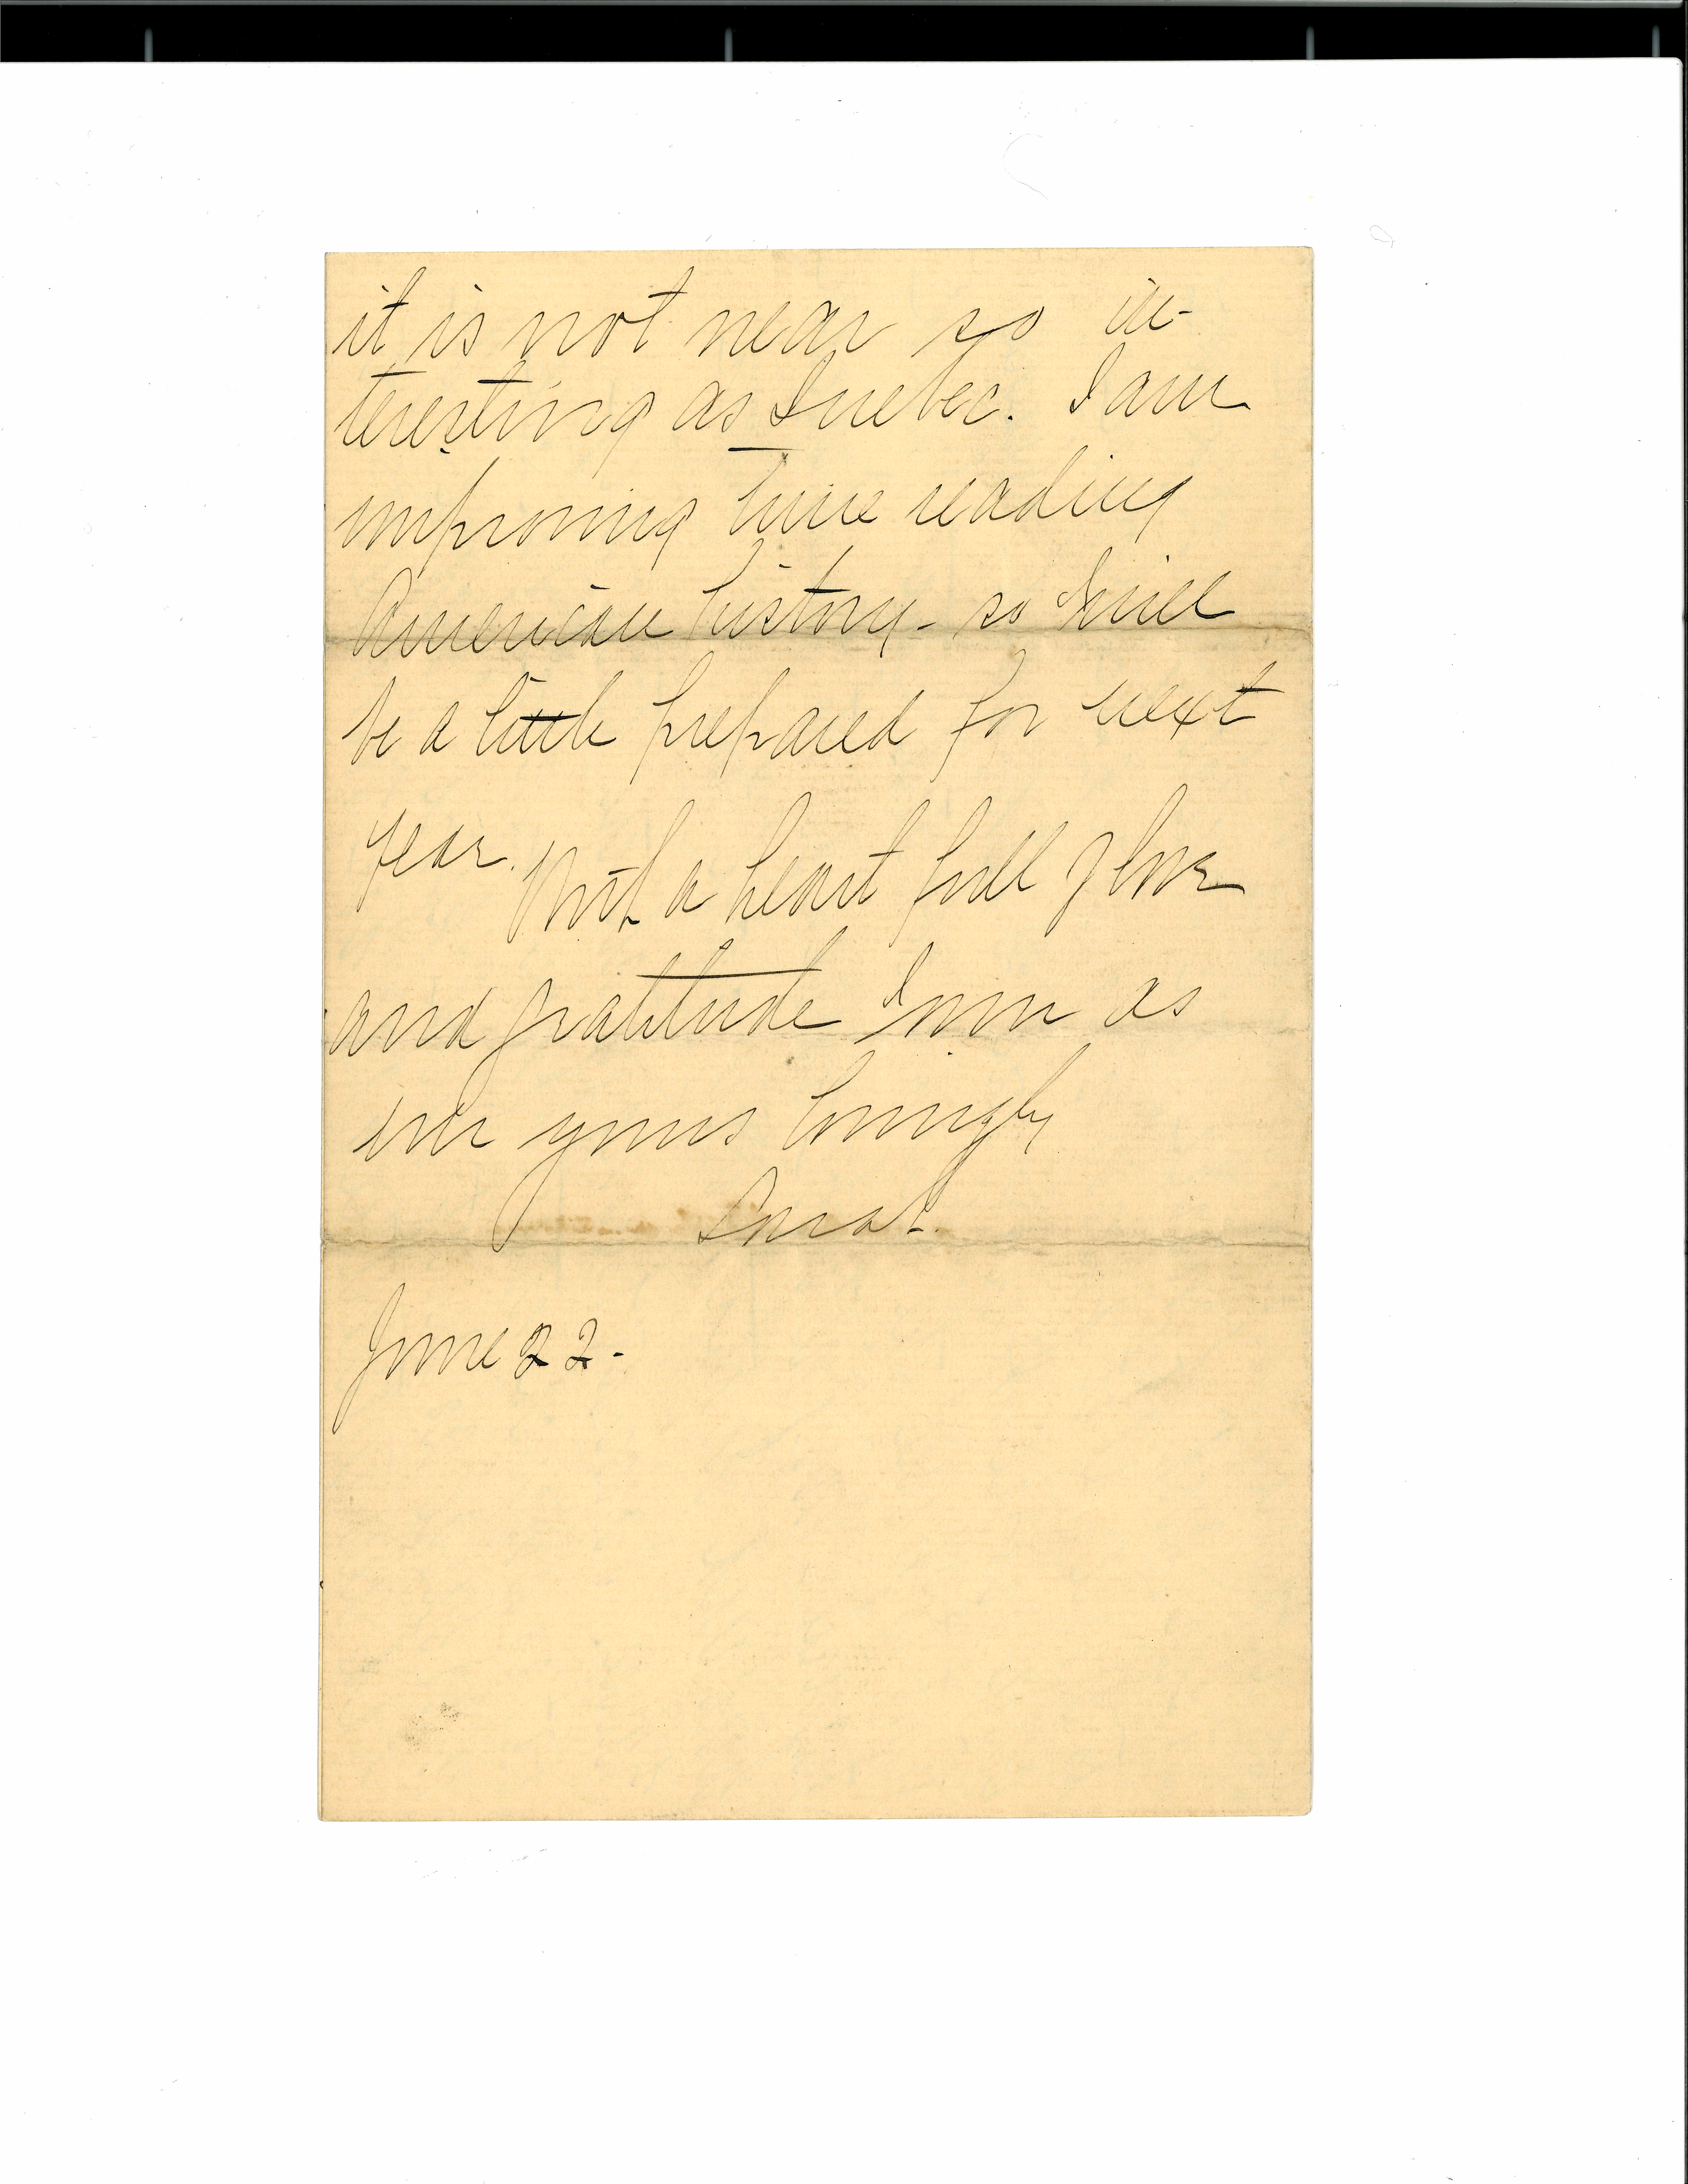 it is not near so in-
teresting as Quebec. I am
improving time reading
American history - so I will
be a little prepared for next
year.
With a heart full of love
and gratitude I am as
ever yours lovingly
Sarah.
June 22-